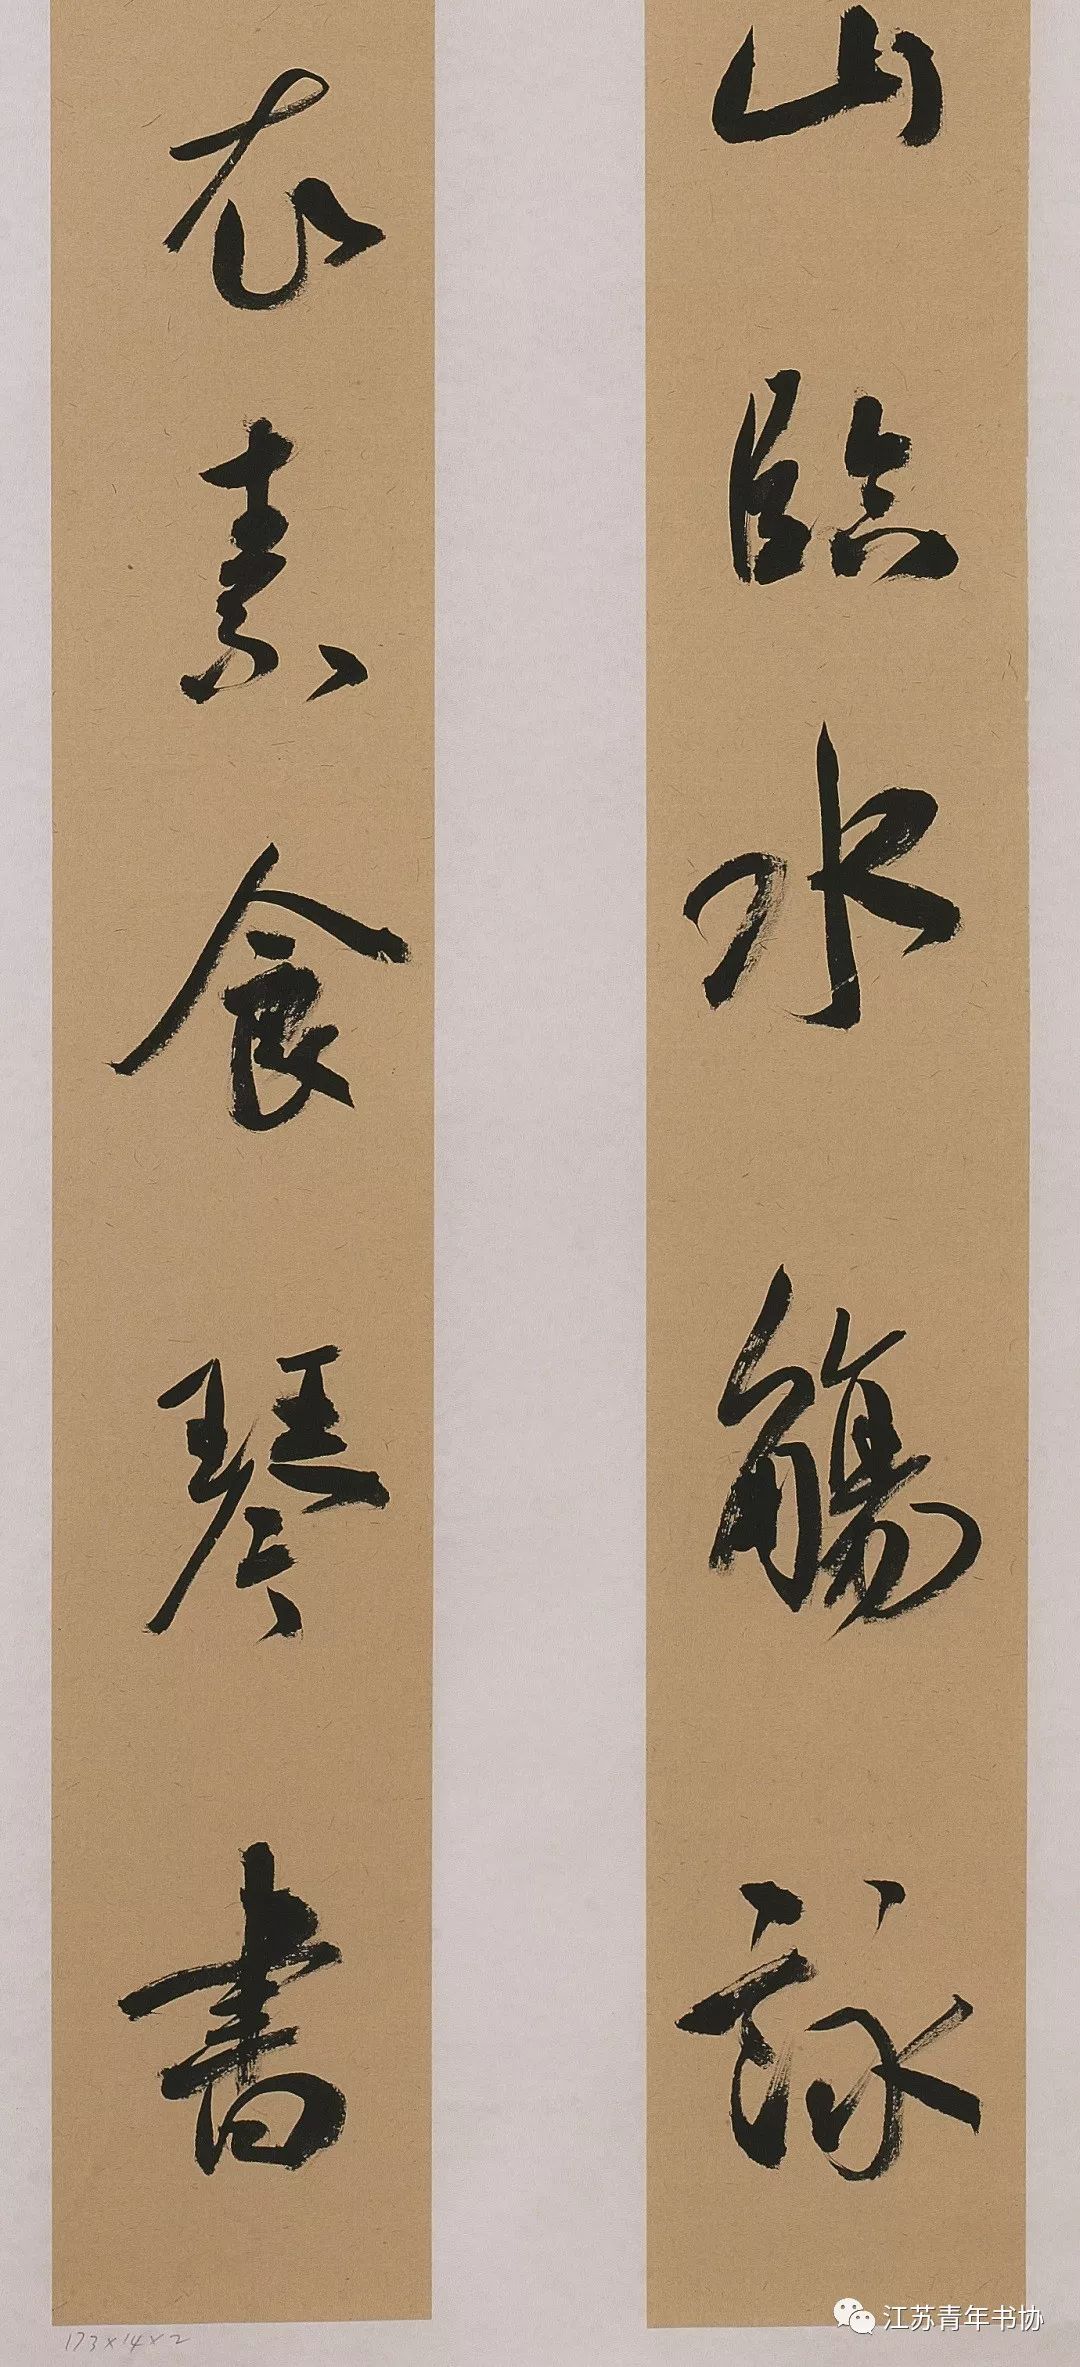 山臨水觴詠
衣素食琴書
173×14×2
江苏青年书协